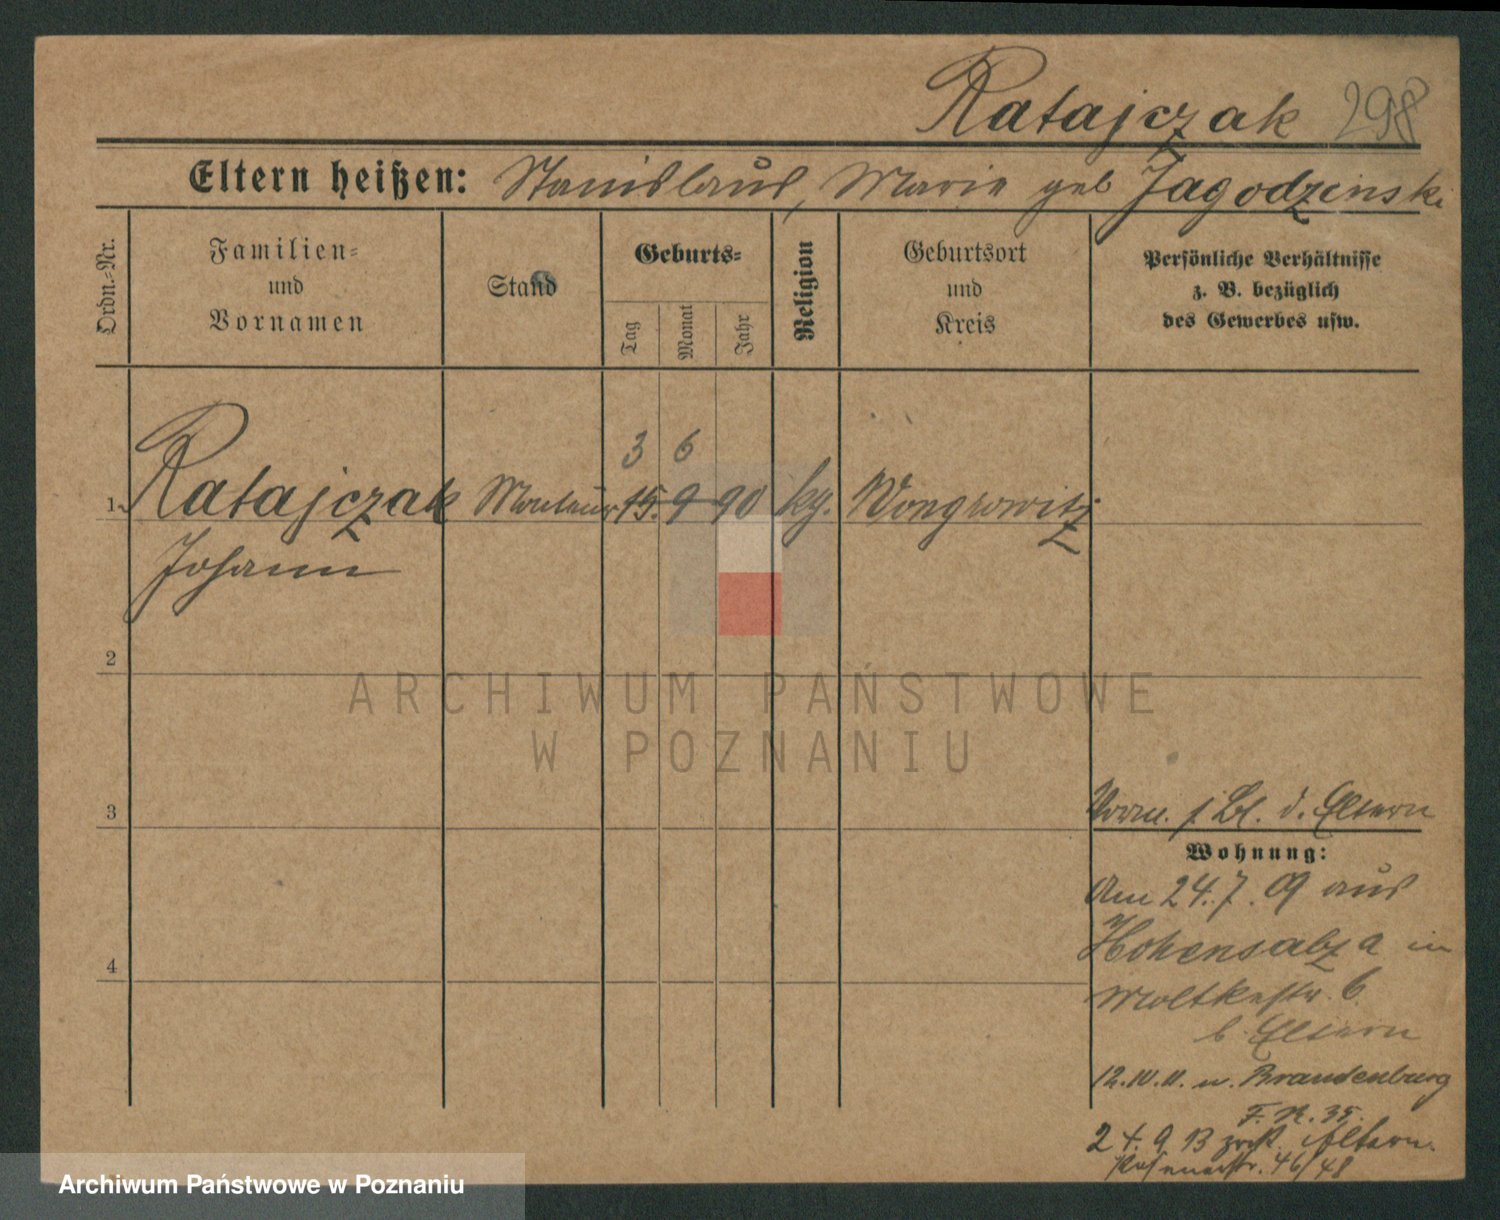 Ratajczak 298
Eltern heißen: Stanislaus, Marie geb Jagodzinski
Ordn.-Nr.
Familien-
und
Vornamen
Stand
Geburts-
Tag
Monat
Jahr
Religion
Geburtsort
und
Kreis
Persönliche Verhältnisse
z. B. bezüglich
des Gewerbes usw.
3 6
1. Ratajczak Monteur 15. 9 90 kg. Wongrowitz
Johann
2
ARCHIWUM PAŃSTWOWE
W POZNANIU
3
Vorm. s. Bl. d. Eltern
Wohnung:
Am 24. 7. 09 aus
Hohensalza in
4
Moltkestr. 6
b Eltern
12.10.11. n. Brandenburg
F. R. 35.
24. 9 13 zur Eltern.
46/48
Archiwum Państwowe w Poznaniu